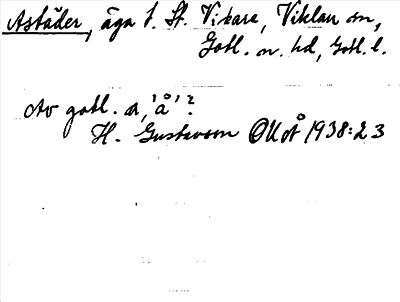 Astäder, äga t. St. Vikare, Viklau sn,
Gotl. n. hd, Gotl. l.
Av gotl. a, 'å'?
H. Gustavson OUÅ 1938:23